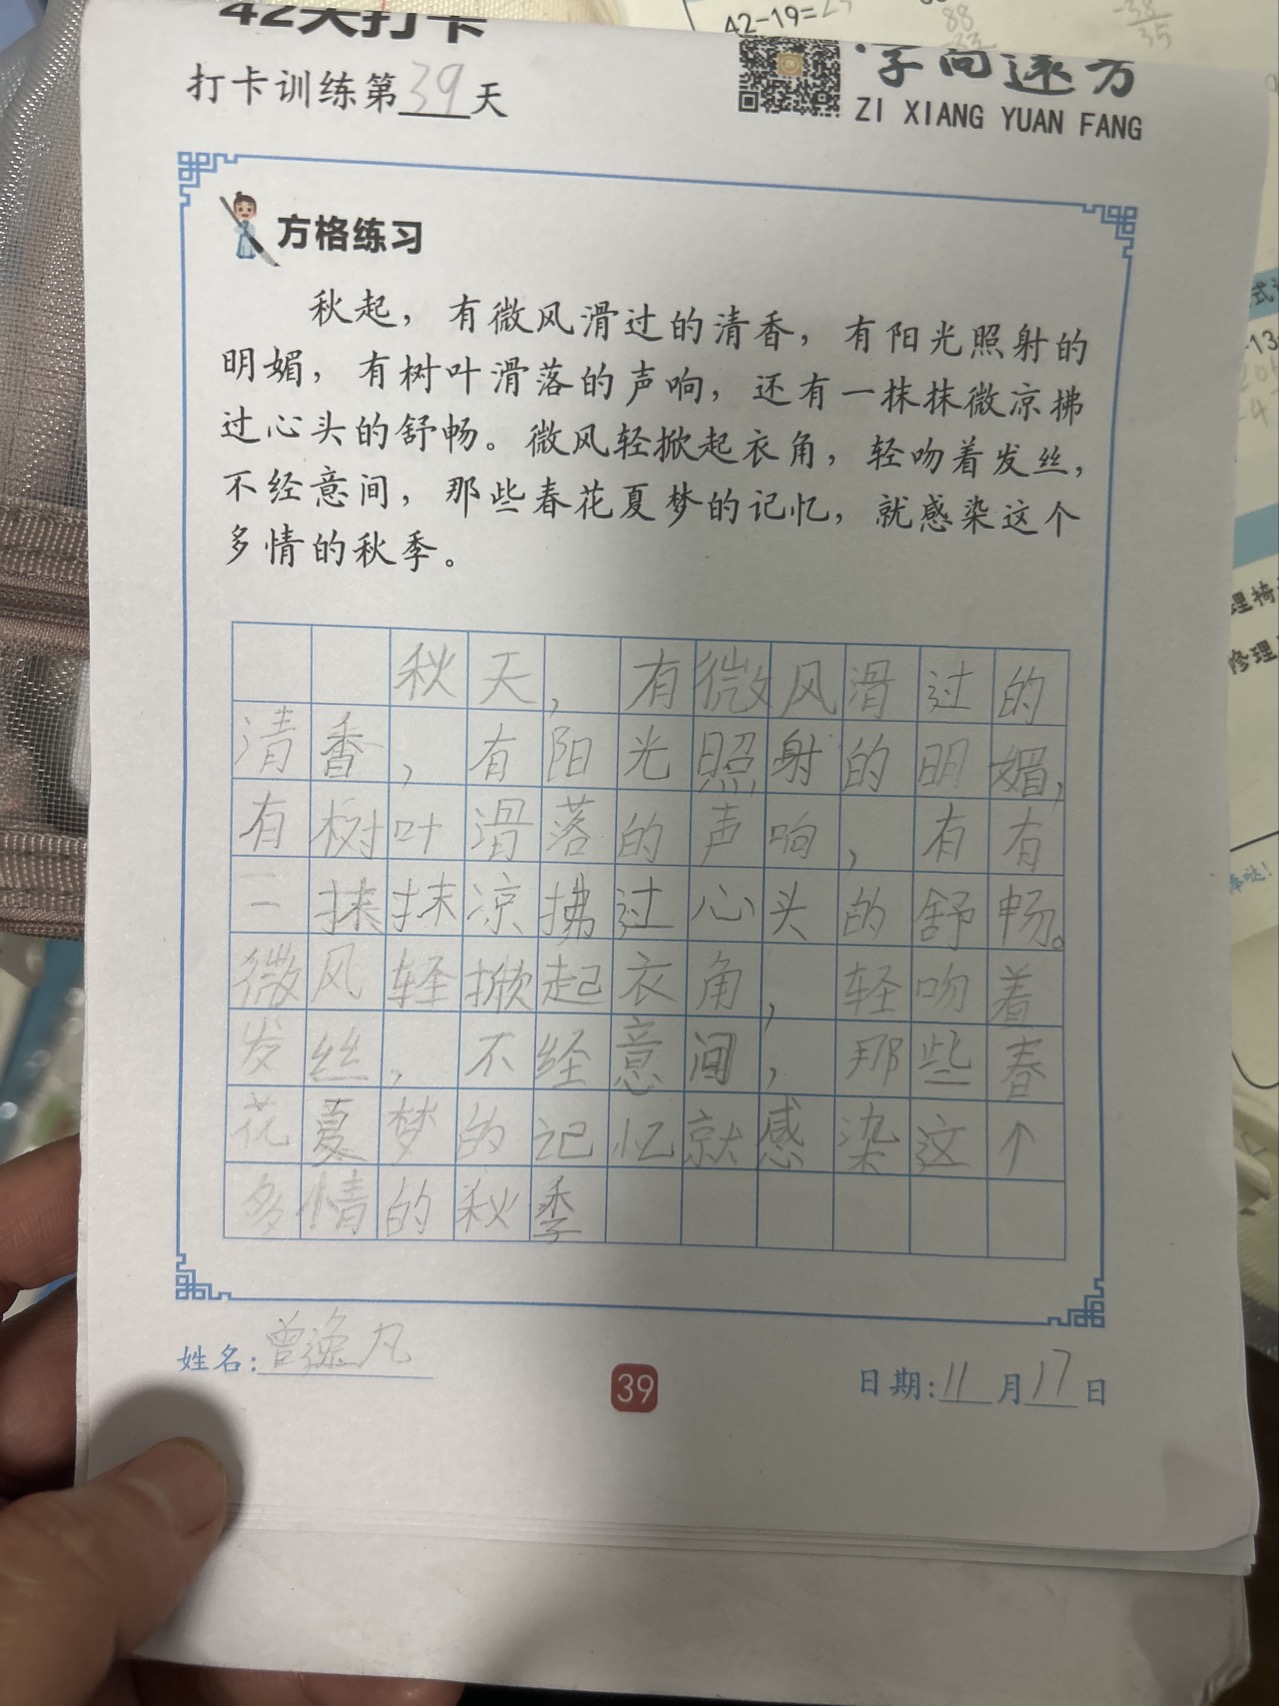 42天打卡
打卡训练第39天
字向远方
ZI XIANG YUAN FANG
42-19=
88
38
35
方格练习
秋起，有微风滑过的清香，有阳光照射的
明媚，有树叶滑落的声响，还有一抹抹微凉拂
过心头的舒畅。微风轻掀起衣角，轻吻着发丝，
不经意间，那些春花夏梦的记忆，就感染这个
多情的秋季。
秋天，有微风滑过的
清香，有阳光照射的明媚，
有树叶滑落的声响，有有
二抹抹凉拂过心头的舒畅。
微风轻掀起衣角，轻吻着
发丝，不经意间，那些春
花夏梦的记忆就感染这个
多情的秋季
姓名:曾逸凡
39
日期:11月17日